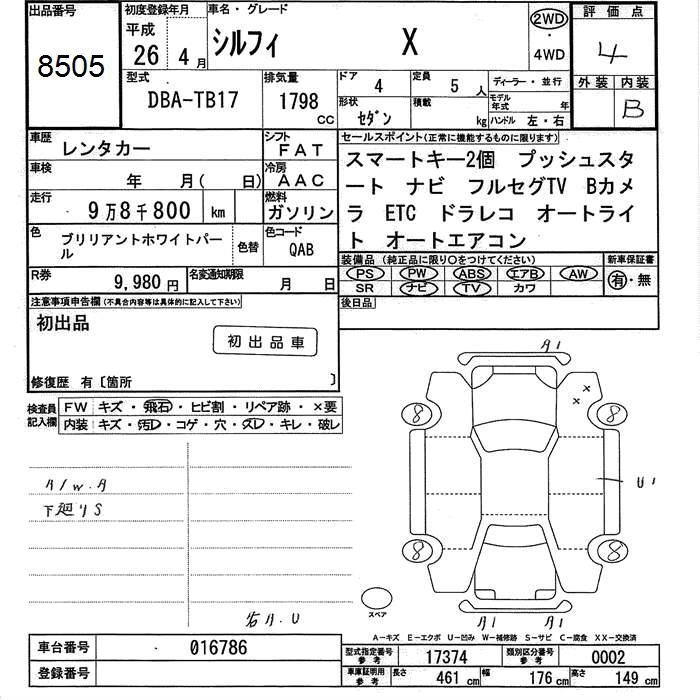 出品番号 初度登録年月 車名・グレード 評価点
8505 平成 26年 4月 シルフィ X 2WD ・ 4WD 4
型式 排気量 ドア 4 定員 5 人 ディーラー・並行 外装 内装
DBA-TB17 1798 cc 形状 セダン 積載 kg モデル年式 年 ハンドル 左・右 B
車歴 レンタカー シフト FAT セールスポイント(正常に機能するものに限ります)
車検 年 月( 日) 冷房 AAC スマートキー2個 プッシュスタ
走行 9万8千800 km 燃料 ガソリン ート ナビ フルセグTV Bカメ
ラ ETC ドラレコ オートライ
ト オートエアコン
色 ブリリアントホワイトパール 色替 色コード QAB
装備品(純正品に限り○をつけてください) 新車保証書
R券 9,980円 名変通知期限 月 日 PS PW ABS エアB AW 有・無
SR ナビ TV カワ
注意事項申告欄(不具合内容等は具体的に記入して下さい) 後日品
初出品 初出品車
修復歴 有〔箇所 〕
検査員記入欄 FW キズ・飛石・ヒビ割・リペア跡・×要
内装 キズ・汚レ・コゲ・穴・スレ・キレ・破レ
A1
8 8
A/W.A
下廻りS
U1
8 8
スペア
A1 A1
A-キズ E-エクボ U-凹み W-補修跡 S-サビ C-腐食 XX-交換済
車台番号 016786 型式指定番号 参考 17374 類別区分番号 参考 0002
登録番号 車庫証明用 参考 長さ 461 cm 幅 176 cm 高さ 149 cm